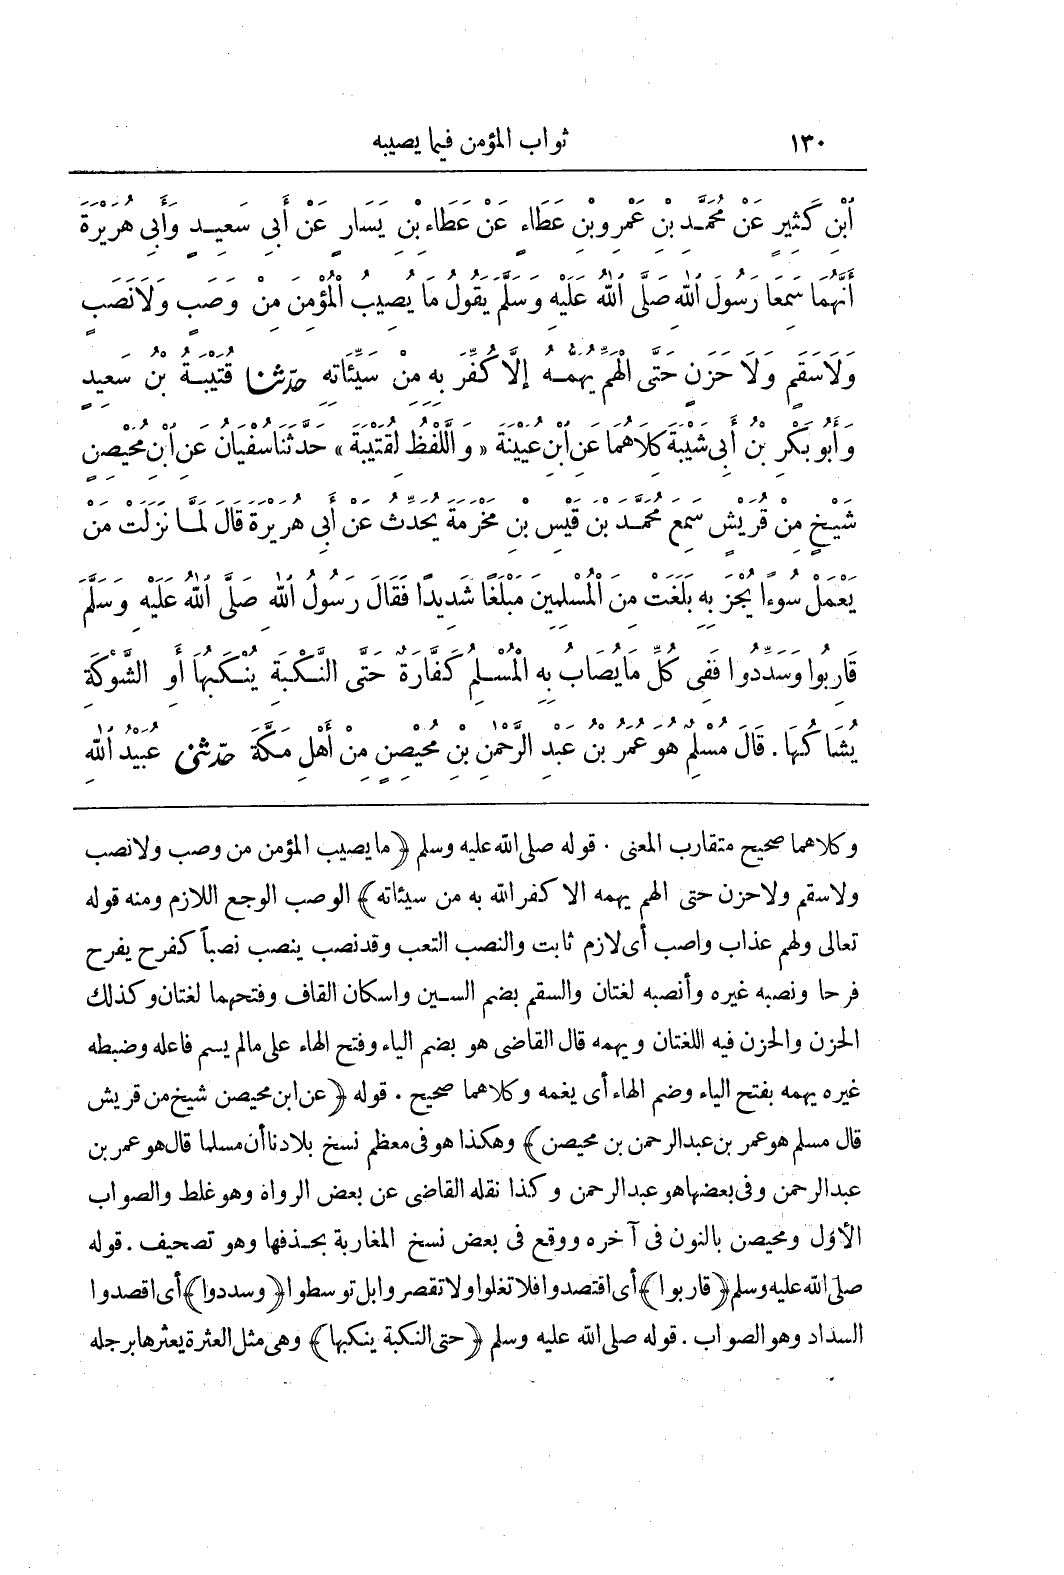 ١٣٠ ثواب المؤمن فيما يصيبه
ٱبْنِ كَثِيرٍ عَنْ مُحَمَّدِ بْنِ عَمْرِو بْنِ عَطَاءٍ عَنْ عَطَاءِ بْنِ يَسَارٍ عَنْ أَبِي سَعِيدٍ وَأَبِي هُرَيْرَةَ
أَنَّهُمَا سَمِعَا رَسُولَ ٱللهِ صَلَّى ٱللهُ عَلَيْهِ وَسَلَّمَ يَقُولُ مَا يُصِيبُ الْمُؤْمِنَ مِنْ وَصَبٍ وَلَا نَصَبٍ
وَلَا سَقَمٍ وَلَا حَزَنٍ حَتَّى الْهَمِّ يُهَمُّهُ إِلَّا كُفِّرَ بِهِ مِنْ سَيِّئَاتِهِ حَدَّثَنَا قُتَيْبَةُ بْنُ سَعِيدٍ
وَأَبُو بَكْرِ بْنُ أَبِي شَيْبَةَ كِلَاهُمَا عَنِ ٱبْنِ عُيَيْنَةَ «وَاللَّفْظُ لِقُتَيْبَةَ» حَدَّثَنَا سُفْيَانُ عَنِ ٱبْنِ مُحَيْصِنٍ
شَيْخٍ مِنْ قُرَيْشٍ سَمِعَ مُحَمَّدَ بْنَ قَيْسِ بْنِ مَخْرَمَةَ يُحَدِّثُ عَنْ أَبِي هُرَيْرَةَ قَالَ لَمَّا نَزَلَتْ مَنْ
يَعْمَلْ سُوءًا يُجْزَ بِهِ بَلَغَتْ مِنَ الْمُسْلِمِينَ مَبْلَغًا شَدِيدًا فَقَالَ رَسُولُ ٱللهِ صَلَّى ٱللهُ عَلَيْهِ وَسَلَّمَ
قَارِبُوا وَسَدِّدُوا فَفِي كُلِّ مَا يُصَابُ بِهِ الْمُسْلِمُ كَفَّارَةٌ حَتَّى النَّكْبَةِ يُنْكَبُهَا أَوِ الشَّوْكَةِ
يُشَاكُهَا. قَالَ مُسْلِمٌ هُوَ عُمَرُ بْنُ عَبْدِ الرَّحْمٰنِ بْنِ مُحَيْصِنٍ مِنْ أَهْلِ مَكَّةَ حَدَّثَنِي عُبَيْدُ ٱللهِ
وكلاهما صحيح متقارب المعنى . قوله صلى الله عليه وسلم ﴿ما يصيب المؤمن من وصب ولا نصب
ولا سقم ولا حزن حتى الهم يهمه الا كفر الله به من سيئاته﴾ الوصب الوجع اللازم ومنه قوله
تعالى ولهم عذاب واصب أى لازم ثابت والنصب التعب وقد نصب ينصب نصباً كفرح يفرح
فرحا ونصبه غيره وأنصبه لغتان والسقم بضم السين واسكان القاف وفتحهما لغتان وكذلك
الحزن والحزن فيه اللغتان ويهمه قال القاضى هو بضم الياء وفتح الهاء على مالم يسم فاعله وضبطه
غيره يهمه بفتح الياء وضم الهاء أى يغمه وكلاهما صحيح . قوله ﴿عن ابن محيصن شيخ من قريش
قال مسلم هو عمر بن عبد الرحمن بن محيصن﴾ وهكذا هو فى معظم نسخ بلادنا أن مسلما قال هو عمر بن
عبد الرحمن وفى بعضها هو عبد الرحمن وكذا نقله القاضى عن بعض الرواة وهو غلط والصواب
الأول ومحيصن بالنون فى آخره ووقع فى بعض نسخ المغاربة بحذفها وهو تصحيف . قوله
صلى الله عليه وسلم ﴿قاربوا﴾ أى اقتصدوا فلا تغلوا ولا تقصروا بل توسطوا ﴿وسددوا﴾ أى اقصدوا
السداد وهو الصواب . قوله صلى الله عليه وسلم ﴿حتى النكبة ينكبها﴾ وهى مثل العثرة يعثرها برجله